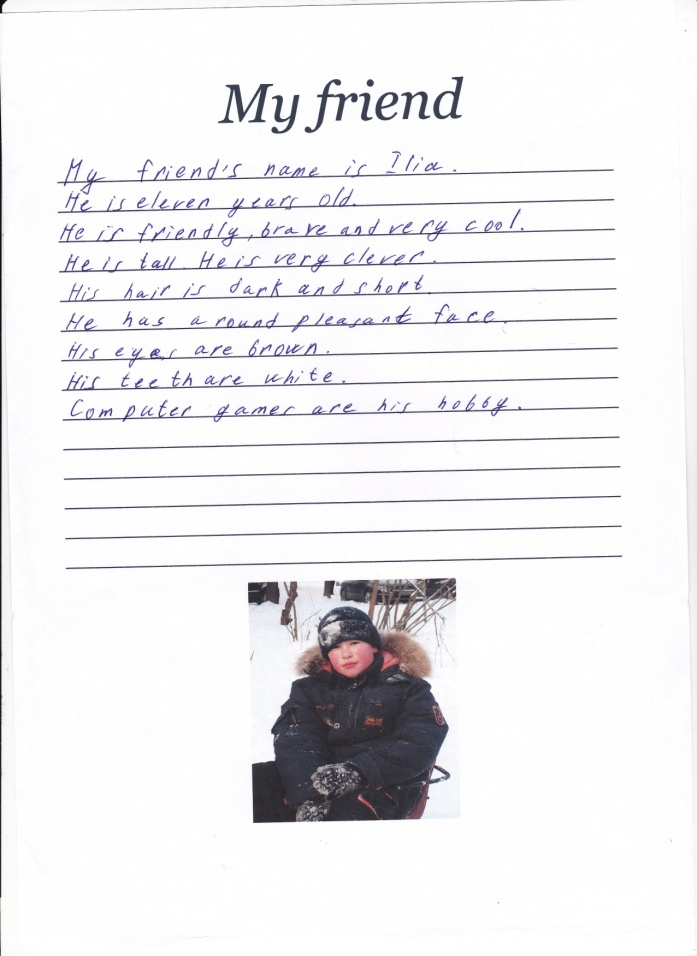 My friend
My friend's name is Ilia.
He is eleven years old.
He is friendly, brave and very cool.
He is tall. He is very clever.
His hair is dark and short.
He has a round pleasant face.
His eyes are brown.
His teeth are white.
Computer games are his hobby.